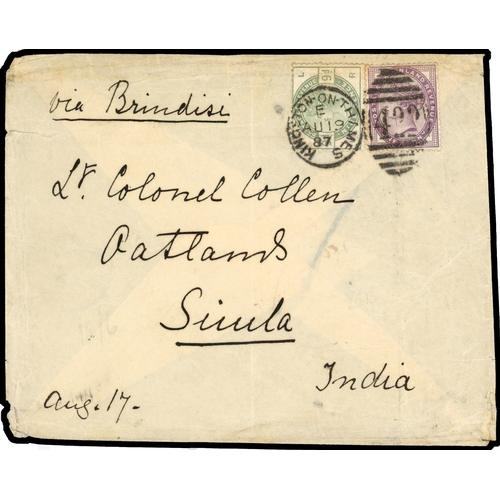 via Brindisi
KINGSTON-ON-THAMES
E
AU 19
87
Lt. Colonel Collen
Oatlands
Simla
India
Aug. 17.